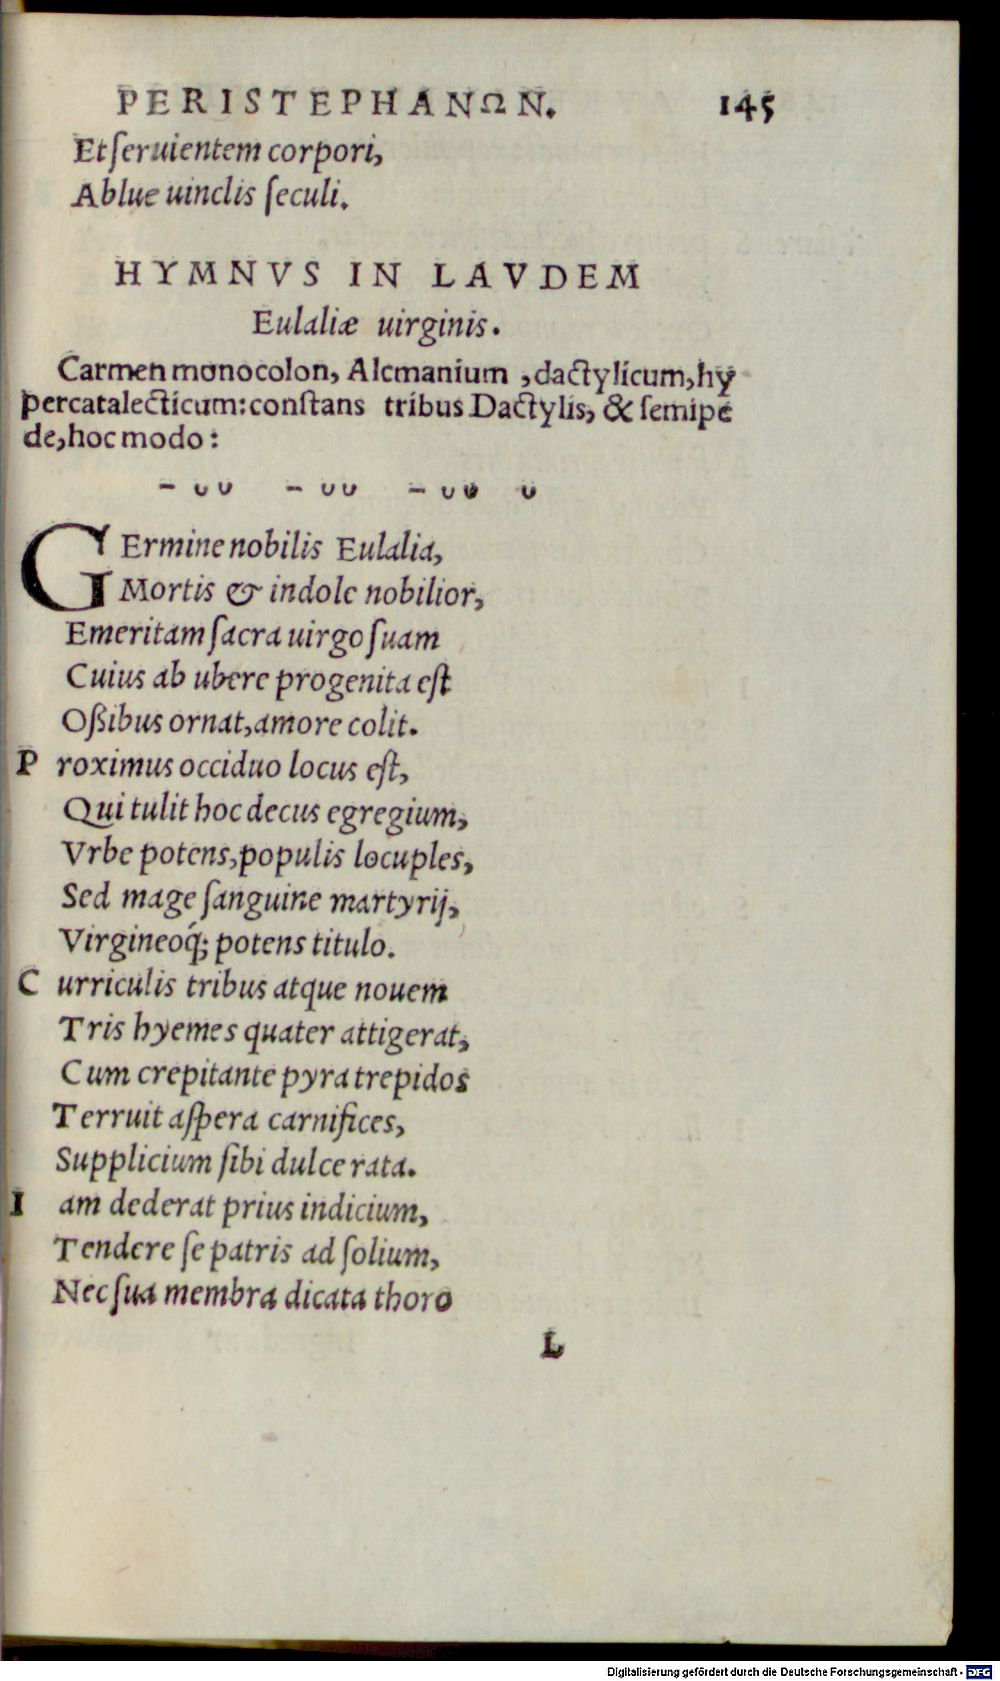 PERISTEPHANΩN. 145
Et ſeruientem corpori,
Ablue uinclis ſeculi.
HYMNVS IN LAVDEM
Eulaliæ uirginis.
Carmen monocolon, Alcmanium, dactylicum, hy
percatalecticum: conſtans tribus Dactylis, & ſemipe
de, hoc modo:
– ∪∪ – ∪∪ – ∪∪ ∪
GErmine nobilis Eulalia,
Mortis & indole nobilior,
Emeritam ſacra uirgo ſuam
Cuius ab ubere progenita eſt
Oßibus ornat, amore colit.
P roximus occiduo locus eſt,
Qui tulit hoc decus egregium,
Vrbe potens, populis locuples,
Sed mage ſanguine martyrij,
Virgineoq́; potens titulo.
C urriculis tribus atque nouem
Tris hyemes quater attigerat,
Cum crepitante pyra trepidos
Terruit aſpera carnifices,
Supplicium ſibi dulce rata.
I am dederat prius indicium,
Tendere ſe patris ad ſolium,
Nec ſua membra dicata thoro
L
Digitalisierung gefördert durch die Deutsche Forschungsgemeinschaft - DFG